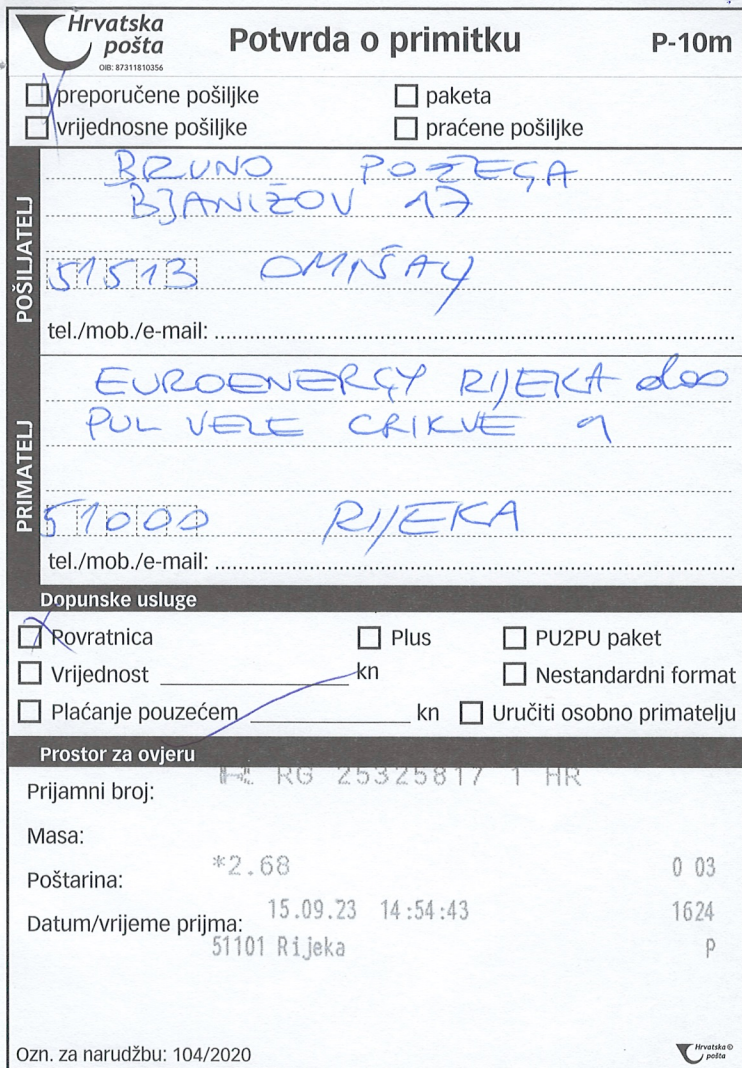 Hrvatska pošta
OIB: 87311810356
Potvrda o primitku
P-10m
preporučene pošiljke
paketa
vrijednosne pošiljke
praćene pošiljke
POŠILJATELJ
BRUNO POŽEGA
BJANIŽOV 17
51513 OMIŠALJ
tel./mob./e-mail:
PRIMATELJ
EUROENERGY RIJEKA doo
PUL VELE CRIKVE 1
51000 RIJEKA
tel./mob./e-mail:
Dopunske usluge
Povratnica
Plus
PU2PU paket
Vrijednost kn
Nestandardni format
Plaćanje pouzećem kn
Uručiti osobno primatelju
Prostor za ovjeru
Prijamni broj: RG 25325817 1 HR
Masa:
Poštarina: *2.68 0 03
Datum/vrijeme prijma: 15.09.23 14:54:43 1624
51101 Rijeka P
Ozn. za narudžbu: 104/2020
Hrvatska© pošta